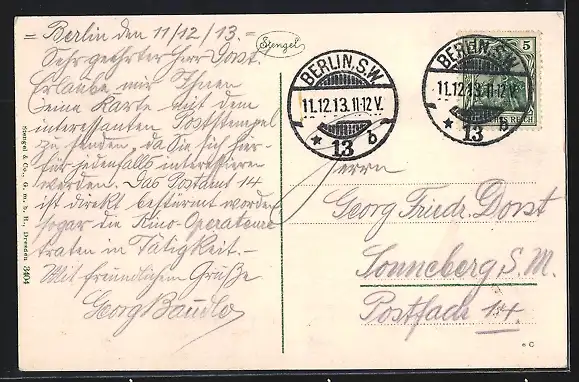 = Berlin den 11/12/13. =
Sehr geehrter Herr Dorst.
Erlaube mir Ihnen
eine Karte mit dem
interessanten Poststempel
zu senden, da Sie sich hier-
für jedenfalls interessieren
werden. Das Postamt 14
ist direkt bestürmt worden
sogar die Kino-Operateure
traten in Tätigkeit. –
Mit freundlichem Grüße
Georg
Stengel & Co., G. m. b. H., Dresden
Stengel
BERLIN, S.W.
11.12.13.11-12 V.
* 13 b
BERLIN, S.W.
11.12.13.11-12 V.
* 13 b
5
Herrn
Georg Friedr. Dorst
Sonneberg S. M.
Postfach 14
C